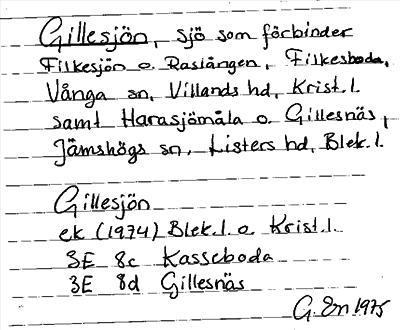 Gillesjön, sjö som förbinder
Filkesjön o. Raslången, Filkesboda,
Vånga sn, Villands hd, Krist. l.
samt Harasjömåla o. Gillesnäs,
Jämshögs sn, Listers hd, Blek. l.
Gillesjön
ek (1974) Blek. l. o. Krist. l.
3E 8c Kasseboda
3E 8d Gillesnäs
G. En 1975